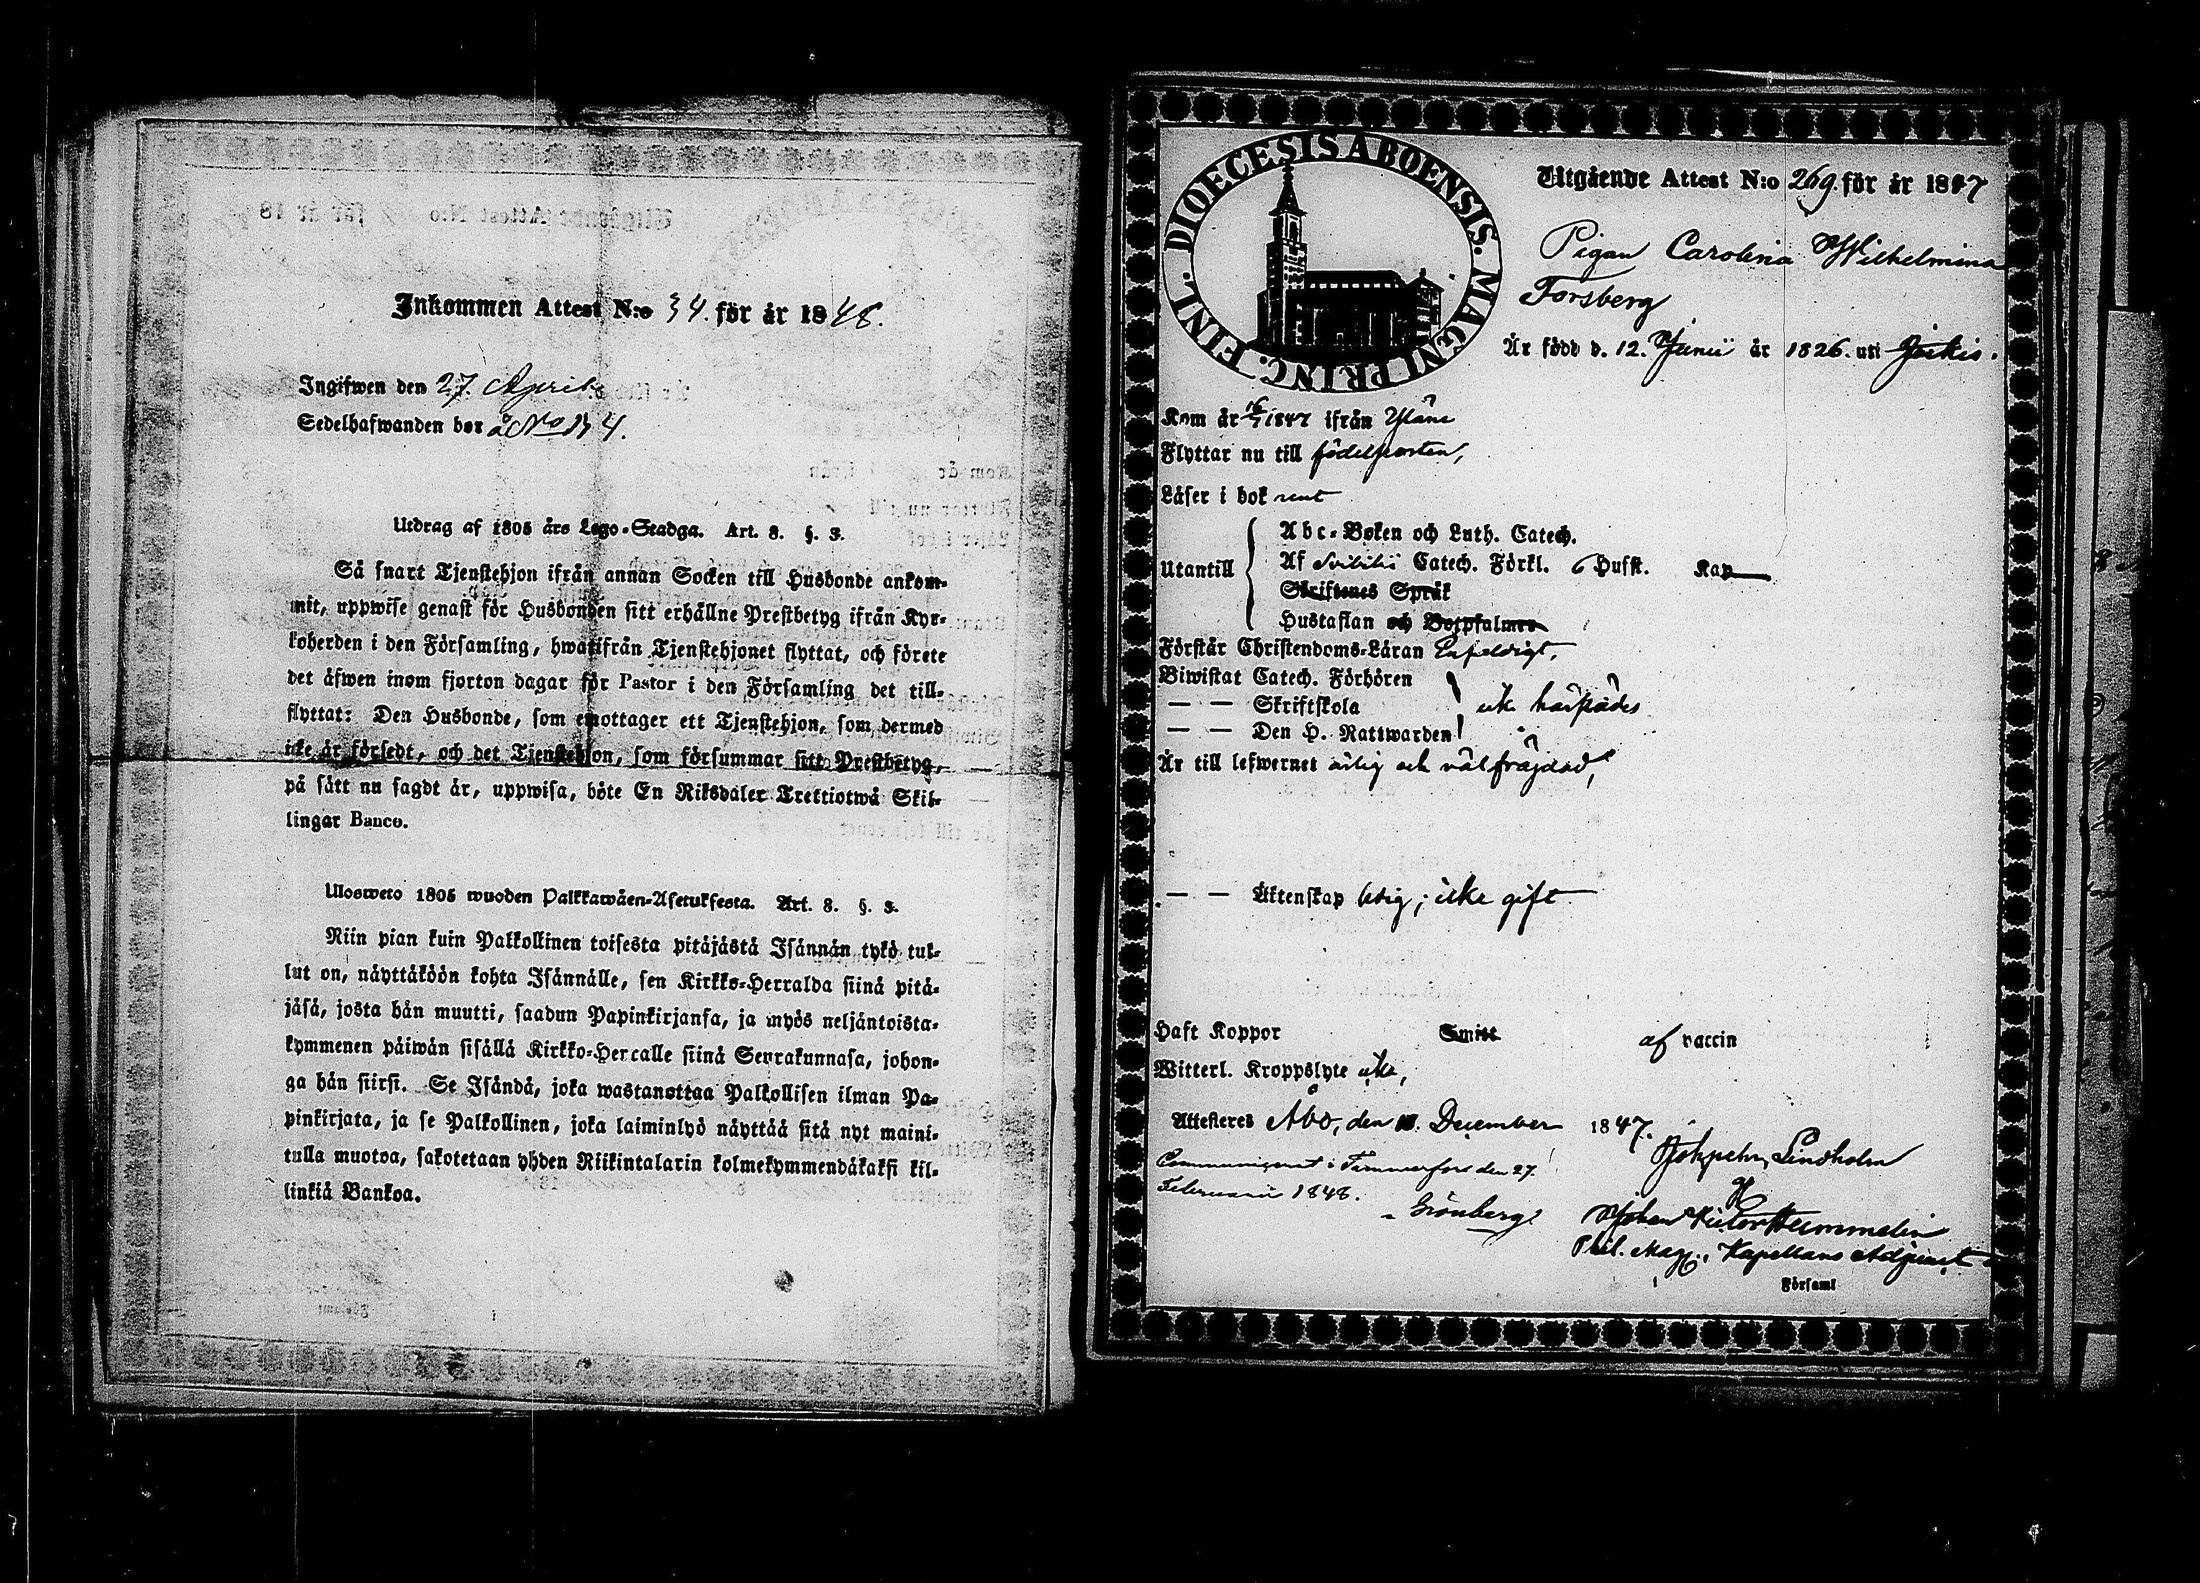 Inkommen Attest N:o 34. för år 1848.
Ingifwen den 27. April
Sedelhafwanden bor å No 134.
Utdrag af 1805 års Lego-Stadga. Art. 8. §. 3.
Så snart Tjenstehjon ifrån annan Socken till Husbonde ankom-
mit, uppwise genast för Husbonden sitt erhållne Prestbetyg ifrån Kyr-
koherden i den Församling, hwarifrån Tjenstehjonet flyttat, och förete
det äfwen inom fjorton dagar för Pastor i den Församling det till-
flyttat: Den Husbonde, som emottager ett Tjenstehjon, som dermed
icke är försedt, och det Tjenstehjon, som försummar sitt Prestbetyg,
på sätt nu sagdt är, uppwisa, böte En Riksdaler Trettiotwå Skil-
lingar Banco.
Ulosweto 1805 wuoden Palkkawäen-Asetuksesta. Art. 8. §. 3.
Niin pian kuin Palkollinen toisesta pitäjästä Isännän tykö tul-
lut on, näyttäköön kohta Isännälle, sen Kirkko-Herralda siinä pitä-
jäsä, josta hän muutti, saadun Papinkirjansa, ja myös neljäntoista-
kymmenen päiwän sisällä Kirkko-Herralle siinä Seurakunnasa, johon-
ga hän siirsi. Se Isändä, joka wastanottaa Palkollisen ilman Pa-
pinkirjata, ja se Palkollinen, joka laiminlyö näyttää sitä nyt maini-
tulla muotoa, sakotetaan yhden Riikintalarin kolmekymmendäkaksi kil-
linkiä Bankoa.
DIOECESIS ABOENSIS. MAGNI PRINC. FINL.
Utgående Attest N:o 269. för år 1847
Pigan Carolina Wilhelmina
Forsberg
Är född d. 12. Junii år 1826. uti Jockis.
Kom år 1847 ifrån Yläne
Flyttar nu till födelseorten,
Läser i bok rent
Abc-Boken och Luth. Catech.
Utantill Af Svibilii Catech. Förkl. 6 Hufst. Kap
Skriftenes Språk
Hustaflan och Botpsalmer
Förstår Christendoms-Läran Enfaldigt,
Biwistat Catech. Förhören
— — Skriftskola icke härstädes
— — Den H. Nattwarden
Är till lefwernet ärlig och välfrägdad,
— — Äktenskap ledig; icke gift
Haft Koppor Smitt af vaccin
Witterl. Kroppslyte icke,
Attesteres Åbo, den 10. December 1847.
Lindholm
Communicerat i Tammerfors den 27.
Februarii 1848.
Grönberg
Johan Victor Hemmelin
Phil. Mag., Kapellans Adjunct
Församl